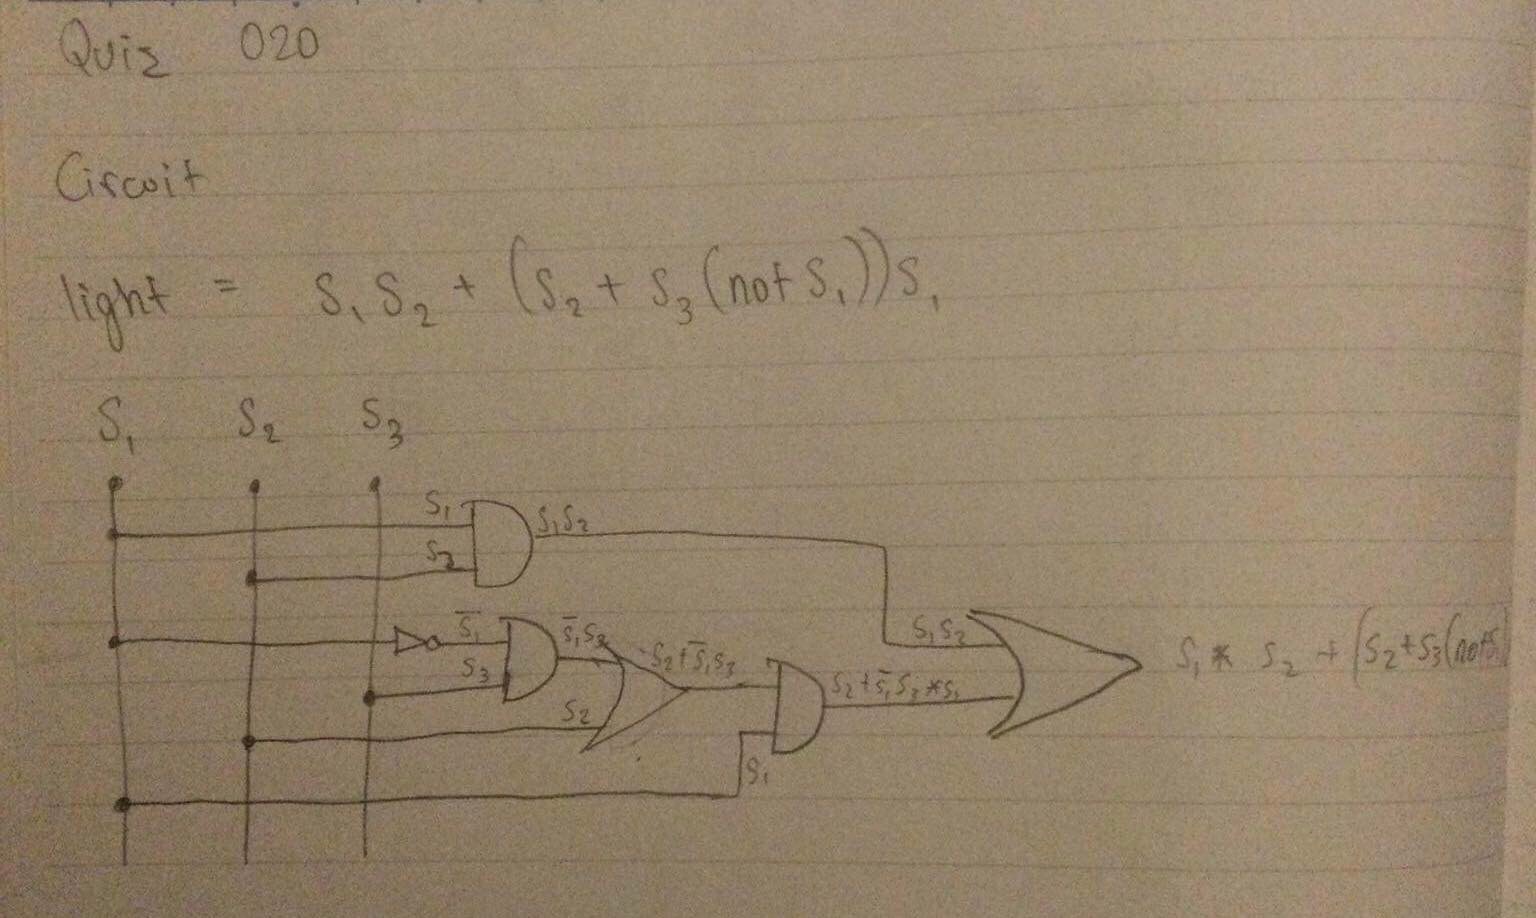 Quiz 020
Circuit
light = S₁ S₂ + (S₂ + S₃ (not S₁)) S₁
S₁ S₂ S₃
S₁
S₁S₂
S₂
S̅₁
S̅₁S₃
S₃
S₂+S̅₁S₃
S₂
S₁
S₂+S̅₁S₃*S₁
S₁S₂
S₁ * S₂ + (S₂+S₃(not S₁